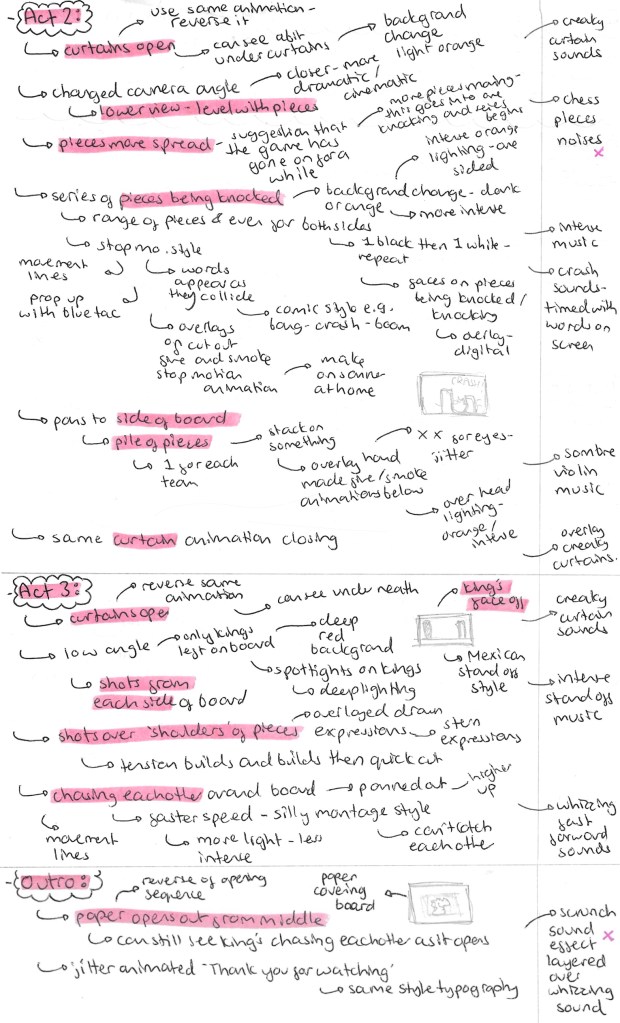 Act 2:
use same animation -
reverse it
curtains open
can see a bit
under curtains
background
change
light orange
creaky
curtain
sounds
changed camera angle
closer - more
dramatic /
cinematic
lower view - level with pieces
pieces more spread - suggestion that
the game has
gone on for a
while
more pieces moving -
this goes into are
knocking and series
begins
chess
pieces
noises
x
series of pieces being knocked
background change - dark
orange
more intense
intense orange
lighting - one
sided
range of pieces & even for both sides
stop mo. style
1 black then 1 white -
repeat
intense
music
movement
lines
prop up
with bluetac
words
appear as
they collide
comic style e.g.
bang - crash - boom
faces on pieces
being knocked /
knocking
overlay -
digital
crash
sounds -
timed with
words on
screen
overlays
of cut out
fire and smoke
stop motion
animation
make
on scanner
at home
CRASH
pans to side of board
pile of pieces
1 for each
team
stack on
something
overlay hand
made fire/smoke
animations below
x x for eyes -
jitter
over head
lighting -
orange /
intense
sombre
violin
music
same curtain animation closing
overlay
creaky
curtains.
Act 3:
reverse same
animation
curtains ope
can see underneath
king's
face off
creaky
curtain
sounds
low angle
only kings
left on board
deep
red
background
spotlights on kings
deep lighting
Mexican
stand off
style
shots from
each side of board
intense
stand off
music
shots over 'shoulders' of pieces
overlayed drawn
expressions
stern
expressions
tension builds and builds then quick cut
chasing eachother around board
panned out
higher
up
movement
lines
faster speed - silly montage style
more light - less
intense
can't catch
eachothe
whizzing
fast
forward
sounds
Outro:
reverse of opening
sequence
paper
covering
board
paper opens out from middle
can still see king's chasing eachother as it opens
jitter animated 'Thank you for watching'
same style typography
scrunch
sound x
effect
layered
over
whizzing
sound